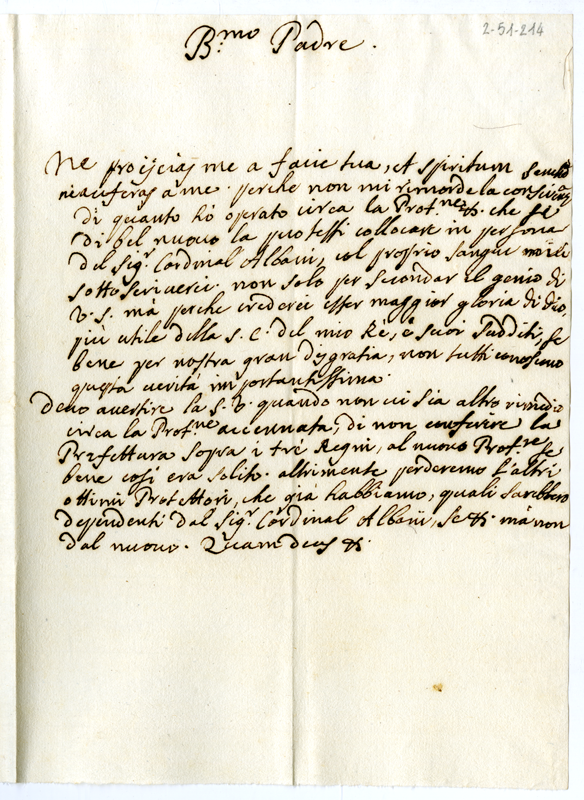 2-51-214
B.mo Padre.
Ne proijcias me a facie tua, et spiritum
ne auferas à me. perche non mi rimorde la conscienza
di quanto hò operato circa la Prot.ne &. che se
di bel nuovo la potessi collocare in persona
del Sig.r Cardinal Albani, col proprio sangue
sottoscriverei. non solo per secondar il genio di
V. S. mà perche crederei esser maggior gloria di Dio,
più utile della S. C. del mio Rè, è suoi sudditi, se
bene per nostra gran disgratia, non tutti conoscono
questa verità importantissima.
Devo avertire la S. V. quando non vi sia altro rimedio
circa la Prot.ne accennata, di non conferire la
Prefettura sopra i trè Regni, al nuovo Prot.re se
bene così era solito. altrimente perderemo l'altri
ottimi Protettori, che già habbiamo, quali sarebbero
dependenti dal Sig.r Cardinal Albani, se &. mà non
dal nuovo. Quam deus &.